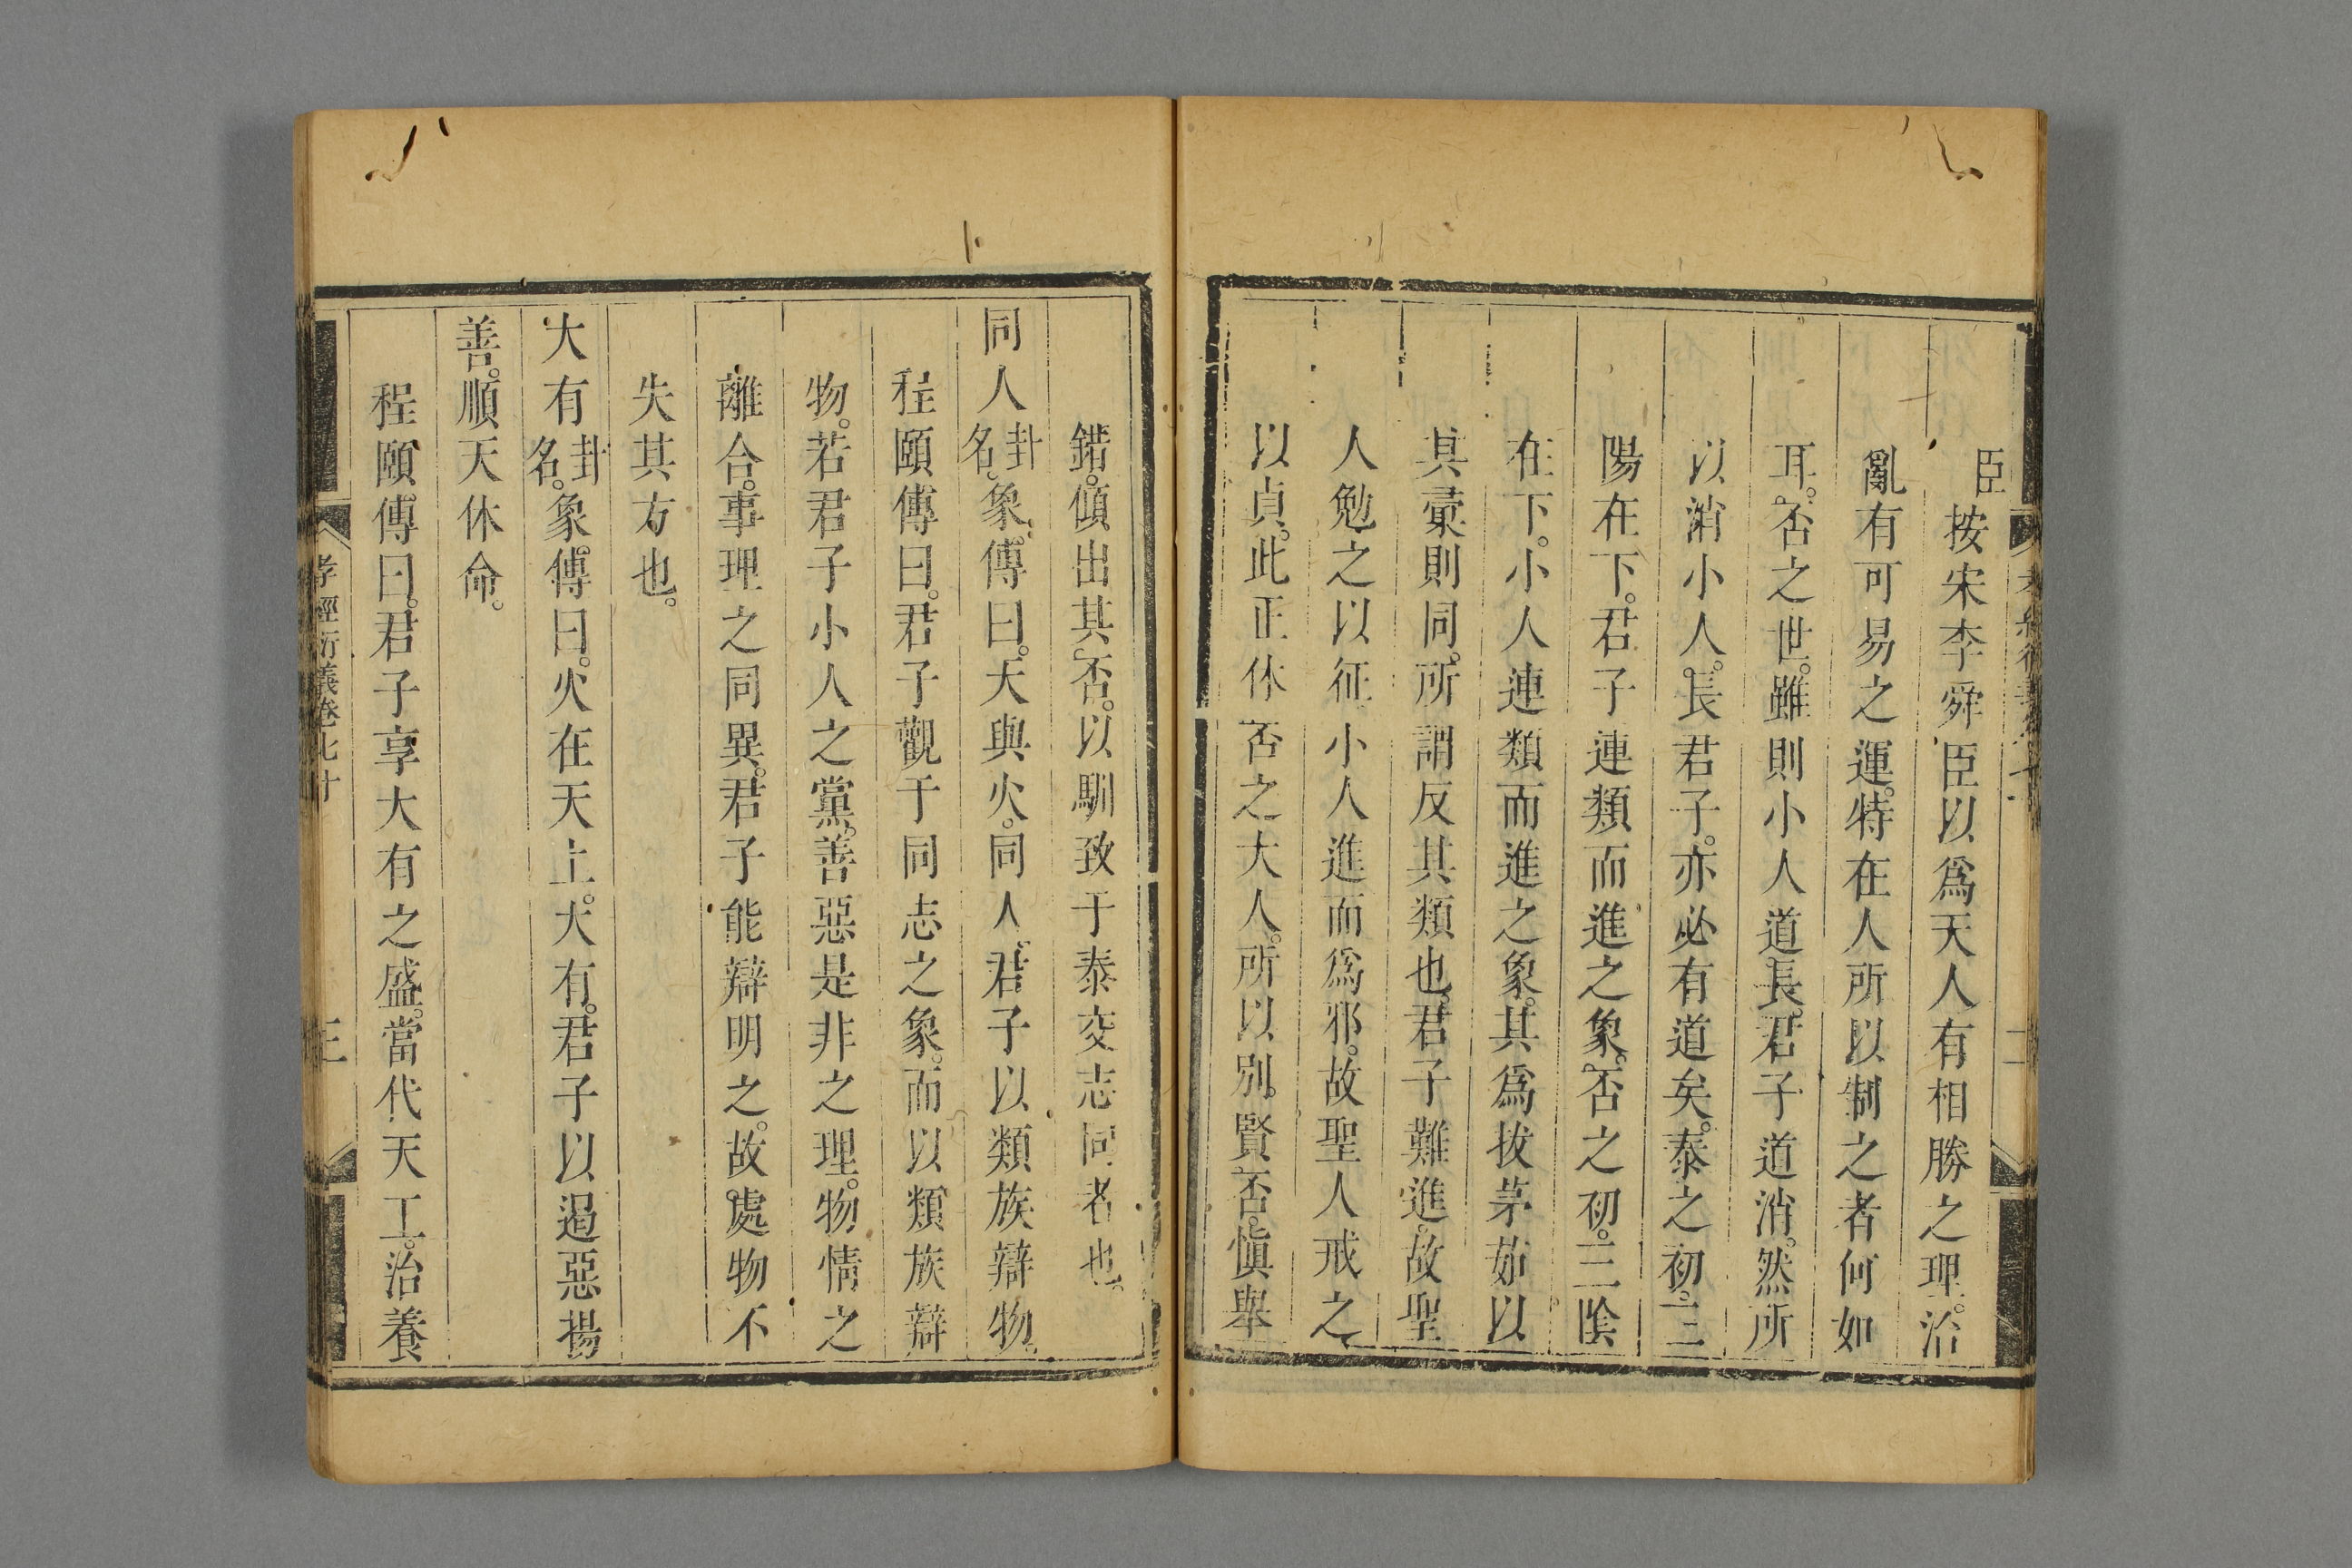 臣按宋李舜臣以爲天人有相勝之理。治
亂有可易之運。特在人所以制之者何如
耳。否之世。雖則小人道長。君子道消。然所
以消小人。長君子。亦必有道矣。泰之初。三
陽在下。君子連類而進之象。否之初。三陰
在下。小人連類而進之象。其爲拔茅茹以
其彚則同。所謂反其類也。君子難進。故聖
人勉之以征。小人進而爲邪。故聖人戒之
以貞。此正休否之大人。所以別。賢否。愼舉
錯。傾出其否。以馴致于泰交志同者也。
同人卦名。象。傳曰。天與火。同人。君子以類族辯物。
程頤傳曰。君子觀于同志之象。而以類族辯
物。若君子小人之黨。善惡是非之理。物情之
離合。事理之同異。君子能辯明之。故。處物不
失其方也。
大有卦名。象。傳曰。火在天上。大有。君子以遏惡揚
善。順天休命。
程頤傳曰。君子享大有之盛。當代天工。治養
孝經衍義卷七十
三